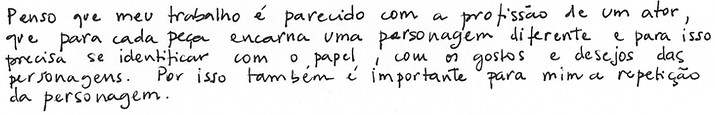 Penso que meu trabalho é parecido com a profissão de um ator,
que para cada peça encarna uma personagem diferente e para isso
precisa se identificar com o papel, com os gostos e desejos das
personagens. Por isso também é importante para mim a repetição
da personagem.